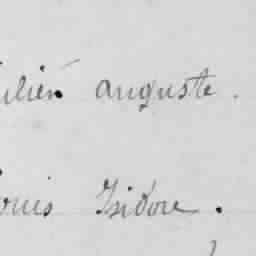 ulien auguste.
ouis Isidore.